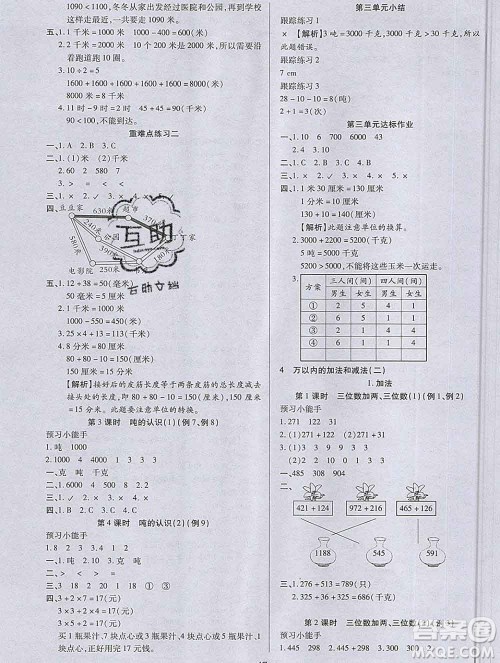 1090<1100，冬冬从家出发经过医院和公园到
学校这样走最近，一共要走 1090 米。
五、1.1 千米=1000 米　1000-400=600(米)
2.1600+1600+1600+1600+1600=8000(米)
8000 米=8 千米
3.10÷2=5
1600+1600+1600+1600+1600=8000(米)
8000 米=8 千米
4.11 时-9 时=2 时　45+45=90(千米)
90<100，不能到达。
重难点练习二
一、1.A　2.B　3.C
二、1.(2)千米
2.60　2　7　580
三、>　<　=　>　<　=
四、豆豆家
630米
超市
370米
240米
公园
580米
180米
电影院
250米
互助
互助文档
五、1.12+38=50(毫米)
50 毫米=5 厘米
2.1 千米=1000 米
1000-550=450(米)
3.25×4+13=113(米)
4.80+80=160(厘米)
80+80-10=150(厘米)
【解析】接好后的皮筋长度等于两条皮筋的长度
减去接头处的皮筋长度，即 80+80-10=150
(厘米)。此题要注意单位的转换。
第 3 课时　吨的认识(1)(例 7、例 8)
预习小能手
1.吨　1000
2.1000　4　4000　5　5000　5
一、克　吨　千克　吨
二、<　=　>　=　>　<
三、1.×　2.√　3.×　4.√　5.×
四、1.B　2.C　3.A
第 4 课时　吨的认识(2)(例 9)
预习小能手
1.8　2.3　1　3　1　2
一、克　吨　克　吨
二、<　<　=　=　>　>
三、3　18　2　20　1　①　③
四、3×4+5=17(元)
3×2+5+2×3=17(元)
3+2×7=17(元)
5+2×6=17(元)
买 1 瓶果汁、7 块点心或 5 瓶果汁、1 块点心或
第三单元小结
跟踪练习 1
×　【解析】3 吨=3000 千克，3000>2999。
跟踪练习 2
7 cm
跟踪练习 3
28-10-10=8(吨)
8<10
第三单元达标作业
一、1.10　70　600　6000　43
二、1.B　2.B　3.A
三、1.×　2.√　3.×　4.×
四、1.1 米 30 厘米=130 厘米
1 米=100 厘米
130-100=30(厘米)
【解析】此题注意单位的换算。
2.3000+2200=5200(千克)
5 吨=5000 千克
5200>5000，不能将这些玉米一次运走。
3.
方案　三人间(间)　四人间(间)
男生　女生　男生　女生
①　2　5　4　1
②　2　1　4　4
③　6　5　1　1
④　6　1　1　4
4　万以内的加法和减法(二)
1.加法
第 1 课时　三位数加两、三位数(1)(例 1、例 2)
预习小能手
1.308　2.(1)271+122　393
(2)271+31　302
一、485　308　904
二、
421+124　972+216　465+126
1188　545　591
三、1.276+513=789(只)
2.326+34=360(元)
3.276+24=300(千克)
第 2 课时　三位数加两、三位数(2)(例 3)
预习小能手
1.445　298　2.445+298　3.445　298
答案圈
MXQE.COM